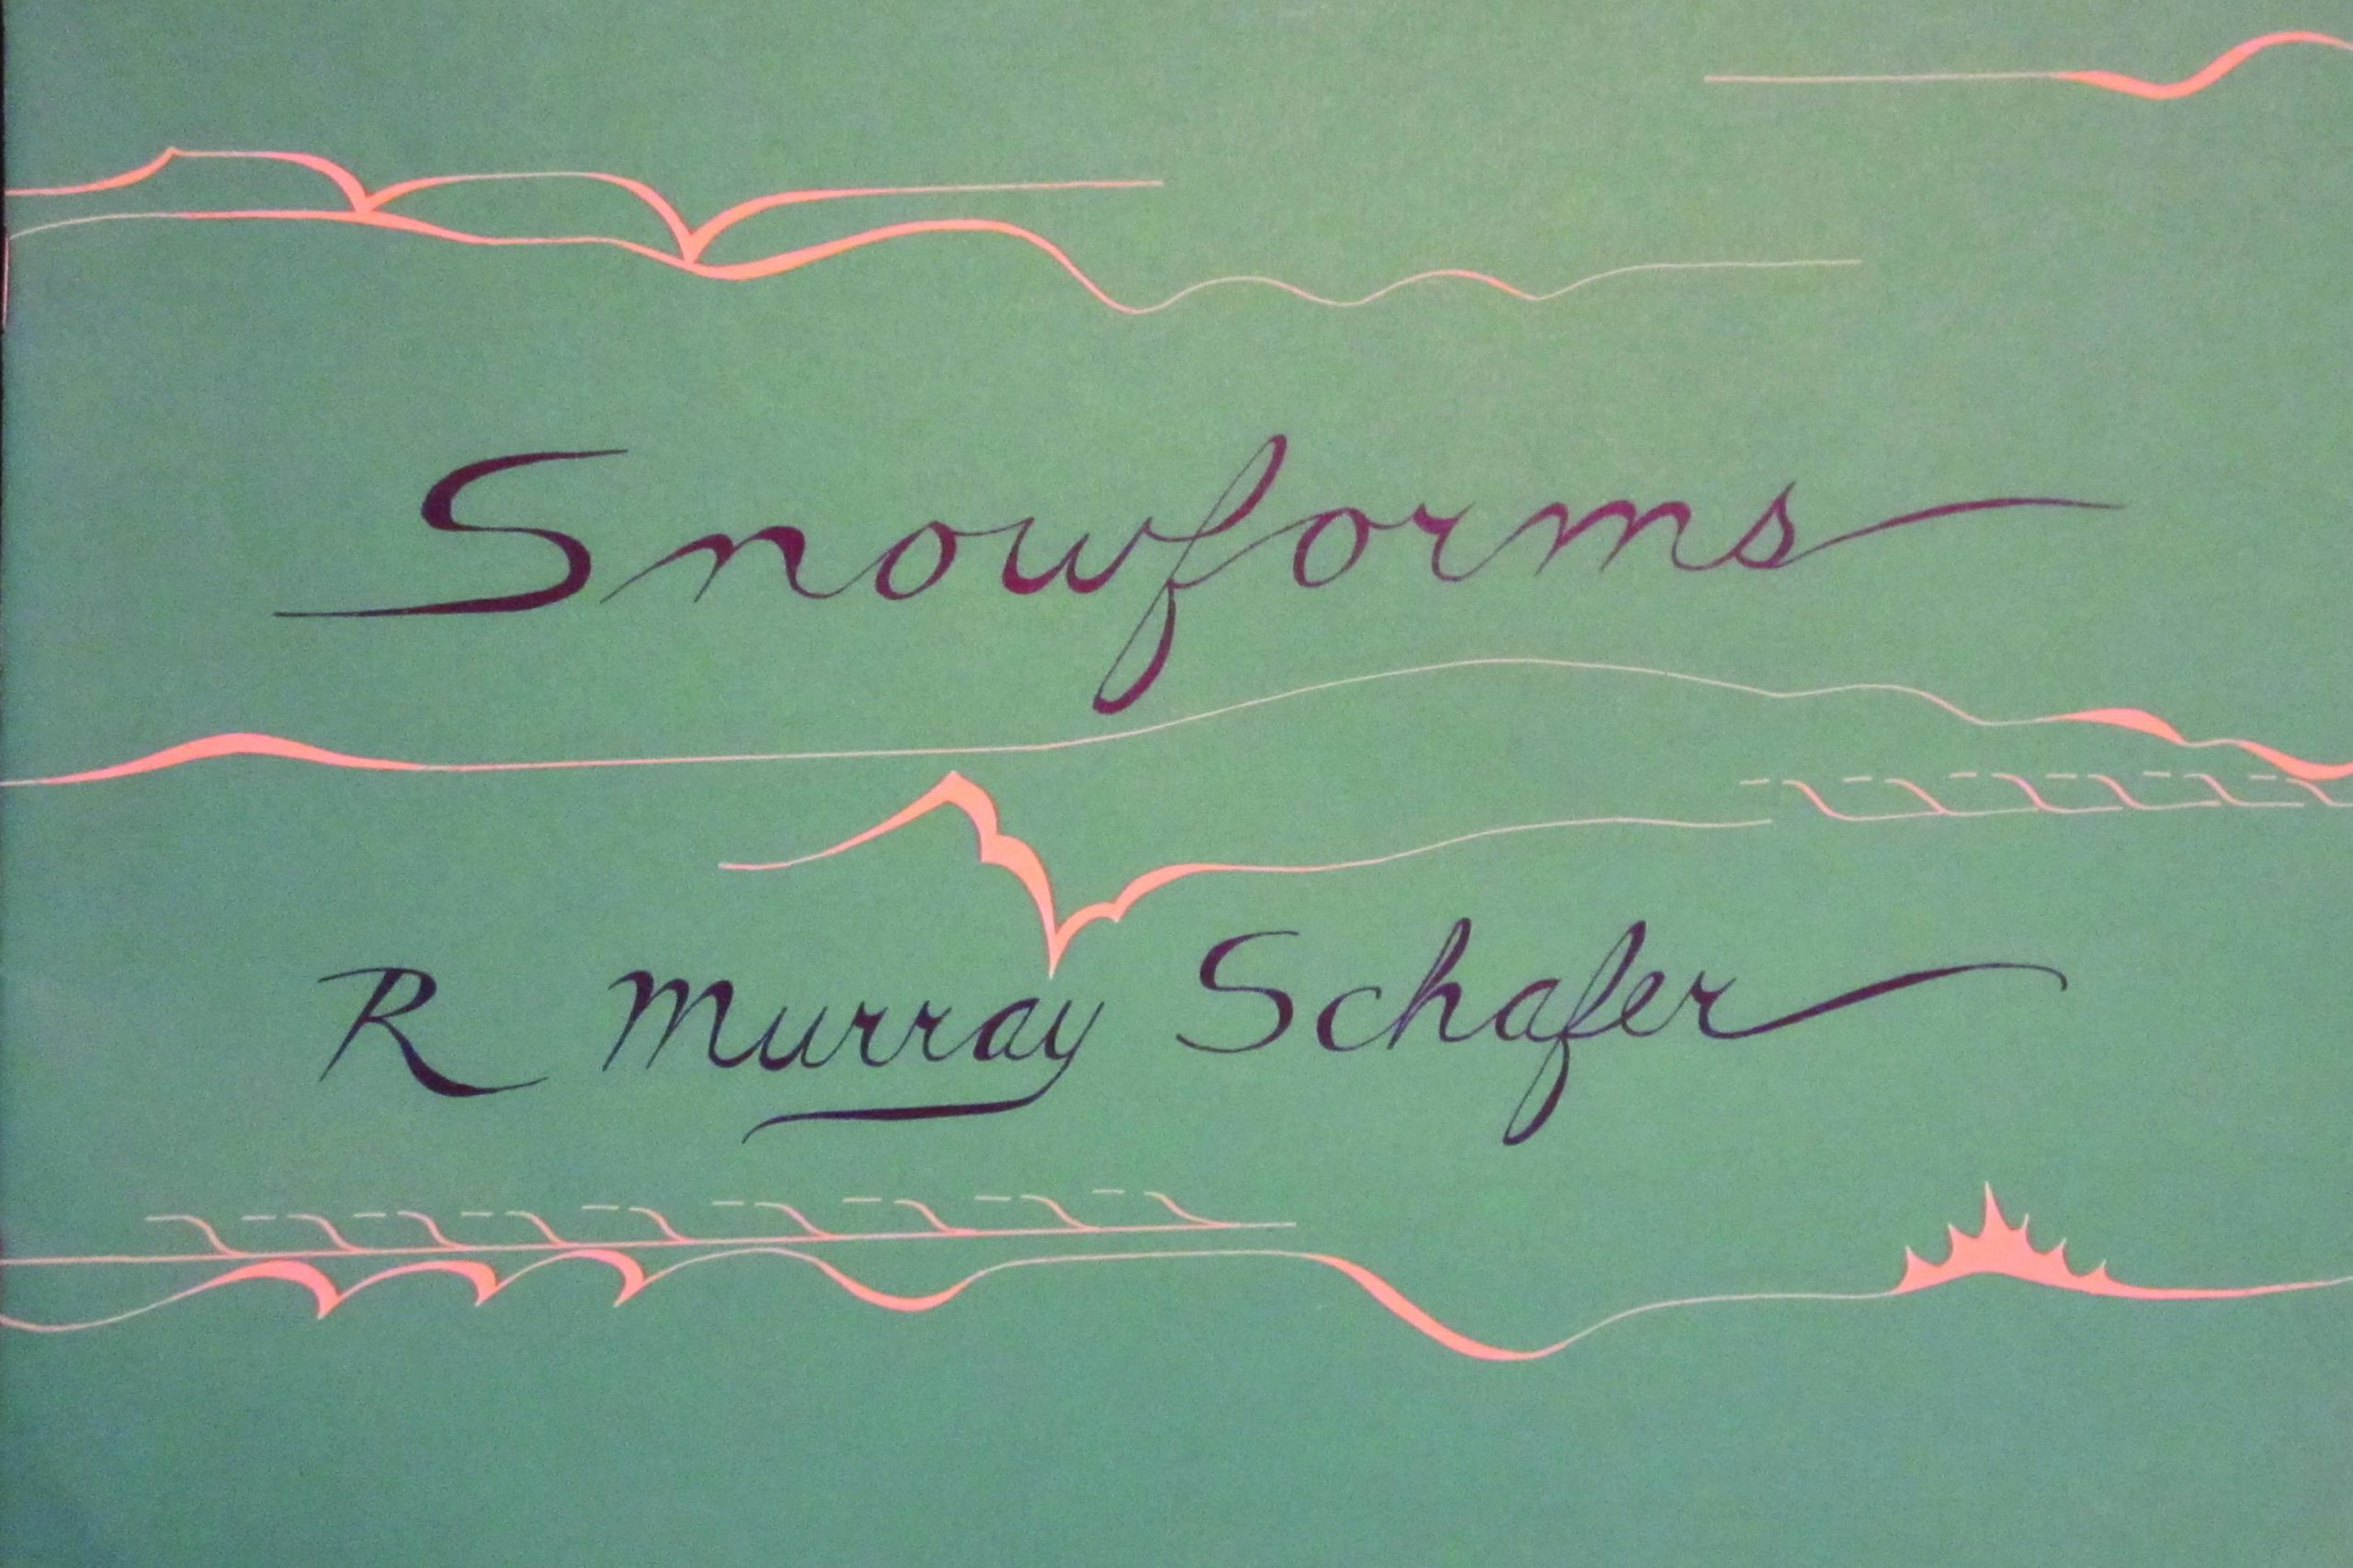 Snowforms
R Murray Schafer